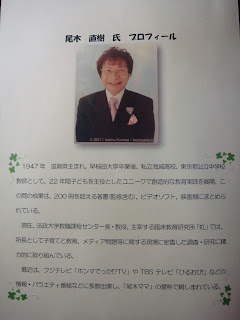 尾木 直樹 氏 プロフィール
1947年 滋賀県生まれ。早稲田大学卒業後、私立海城高校、東京都公立中学校
教師として、22年間子どもを主役としたユニークで創造的な教育実践を展開。こ
の間の成果は、200冊を超える著書(監修含む)、ビデオソフト、映画類にまとめら
れている。
現在、法政大学教職課程センター長・教授。主宰する臨床教育研究所「虹」では、
所長として子育てと教育、メディア問題等に関する現場に密着した調査・研究に精
力的に取り組んでいる。
最近は、フジテレビ「ホンマでっか!?TV」や TBS テレビ「ひるおび」などの
情報・バラエティ番組などに多数出演し、「尾木ママ」の愛称で親しまれている。